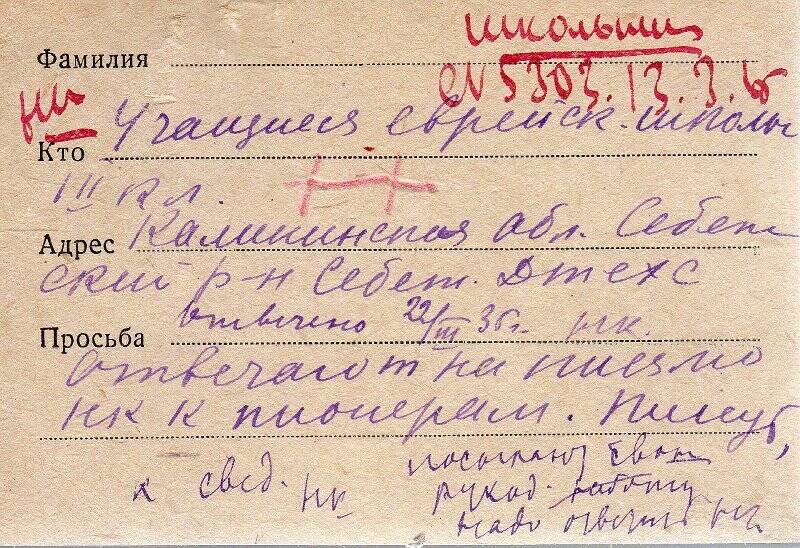 школьниц
Фамилия
N 5303. 13.3.
нк
Учащиеся еврейск. школы
Кто
III кл.
Адрес Калининская обл. Себеж
ский р-н Себеж. Дтехс
отвечено 22/III 35г. нк.
Просьба
отвечают на письмо
нк к пионерам. Пишут,
к свед. нк
посылают свою
рукод. работу
надо ответить нк.